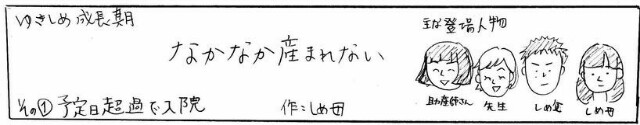 ゆきしめ成長期
なかなか産まれない
その①予定日超過で入院
作:しめ母
主な登場人物
助産師さん
先生
しめ父
しめ母